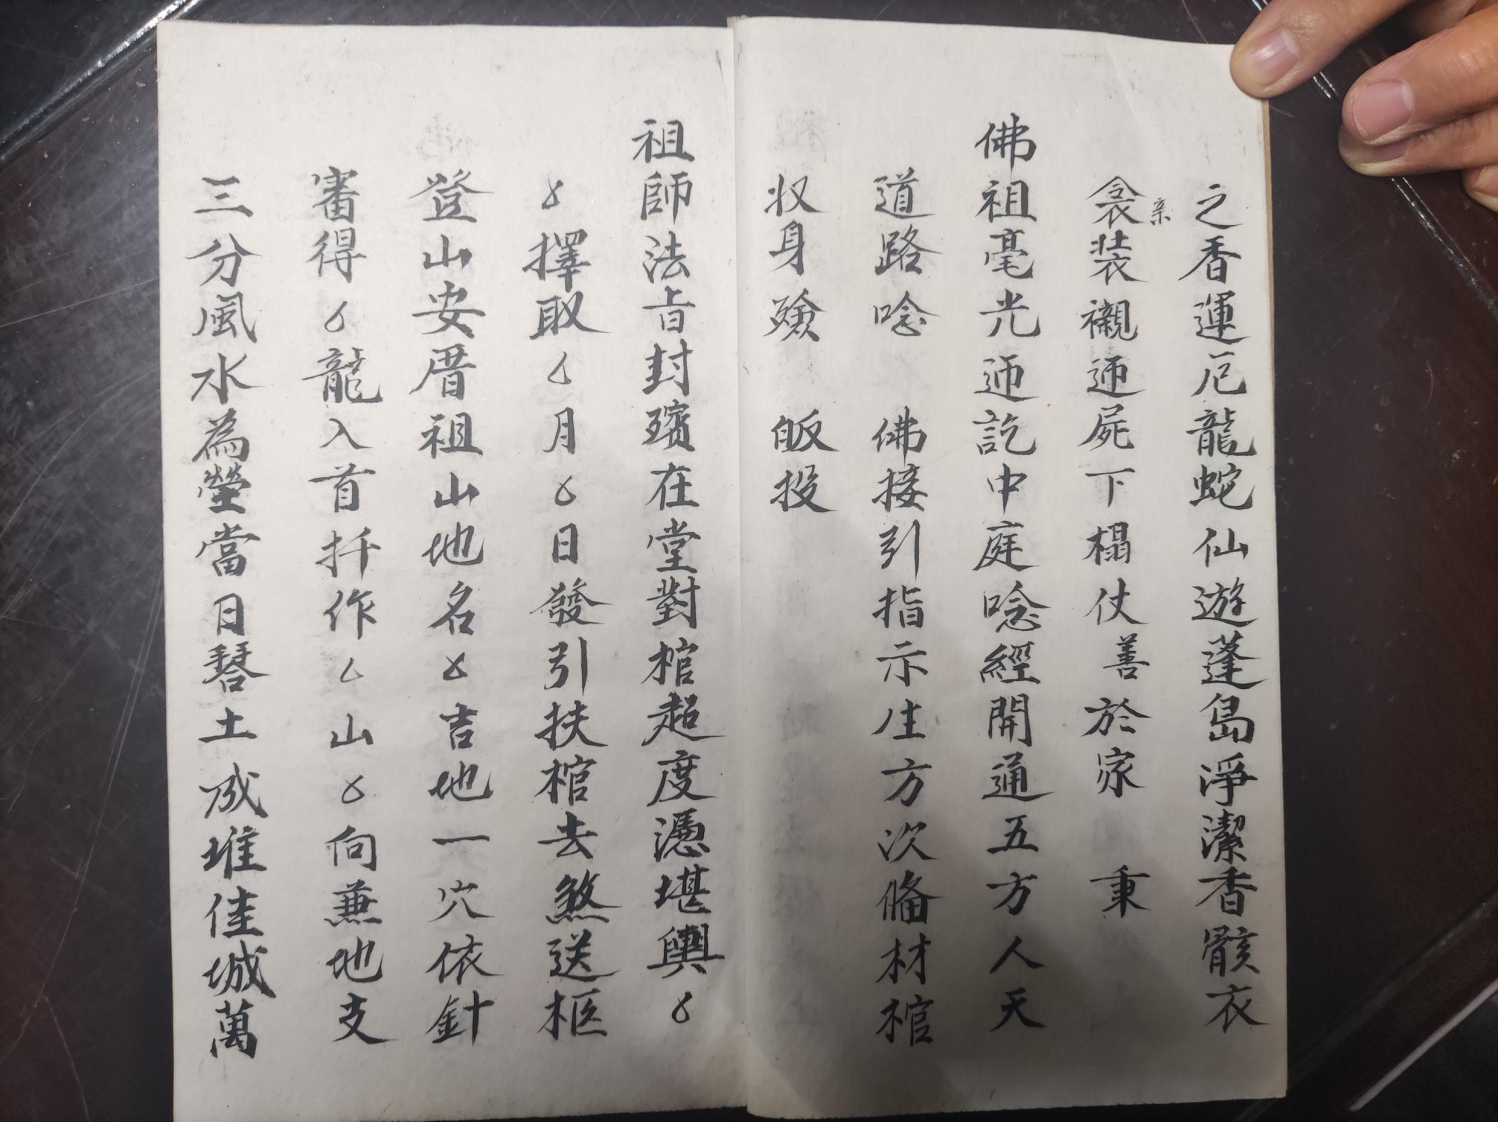 之香運厄龍蛇仙遊蓬島淨潔香骸衣
衾装襯逥屍下榻仗善於家 秉
亲
佛祖毫光逥訖中庭唸經開通五方人天
道路唸 佛接引指示生方次俻材棺
収身殮 皈投
祖師法旨封殯在堂對棺超度憑堪輿〥
〥擇取〥月〥日發引扶棺去煞送柩
登山安厝祖山地名〥吉地一穴依針
審得〥龍入首扦作〥山〥向兼地支
三分風水為塋當日㨿土成堆佳城萬